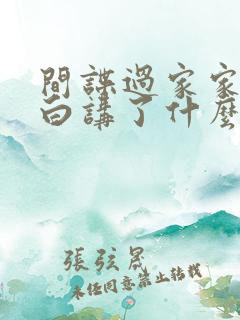 間諜過家家
白講了什麼
張弦晟
未經同意禁止轉載